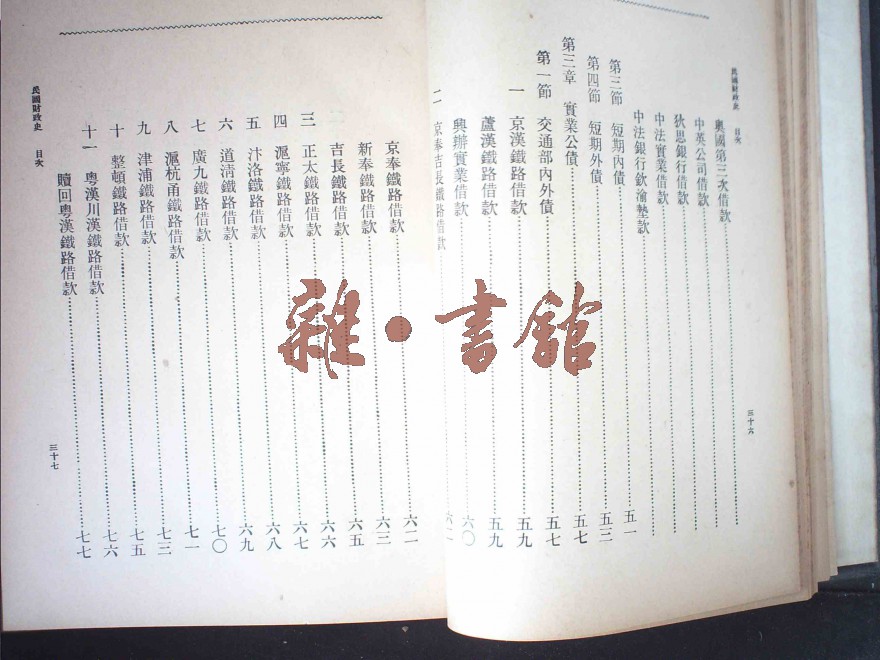 民國財政史 目次
三十六
奧國第三次借款
中英公司借款
狄思銀行借款
中法實業借款
中法銀行欽渝墊款
第三節 短期內債 五一
第四節 短期外債 五三
第三章 實業公債 五七
第一節 交通部內外債 五七
一 京漢鐵路借款 五九
蘆漢鐵路借款 五九
興辦實業借款 六〇
二 京奉吉長鐵路借款
京奉鐵路借款 六二
新奉鐵路借款 六三
吉長鐵路借款 六五
三 正太鐵路借款 六六
四 滬寧鐵路借款 六七
五 汴洛鐵路借款 六八
六 道清鐵路借款 六九
七 廣九鐵路借款 七〇
八 滬杭甬鐵路借款 七一
九 津浦鐵路借款 七三
十 整頓鐵路借款 七五
十一 粵漢川漢鐵路借款 七六
贖回粵漢鐵路借款 七七
民國財政史 目次
三十七
雜·書館